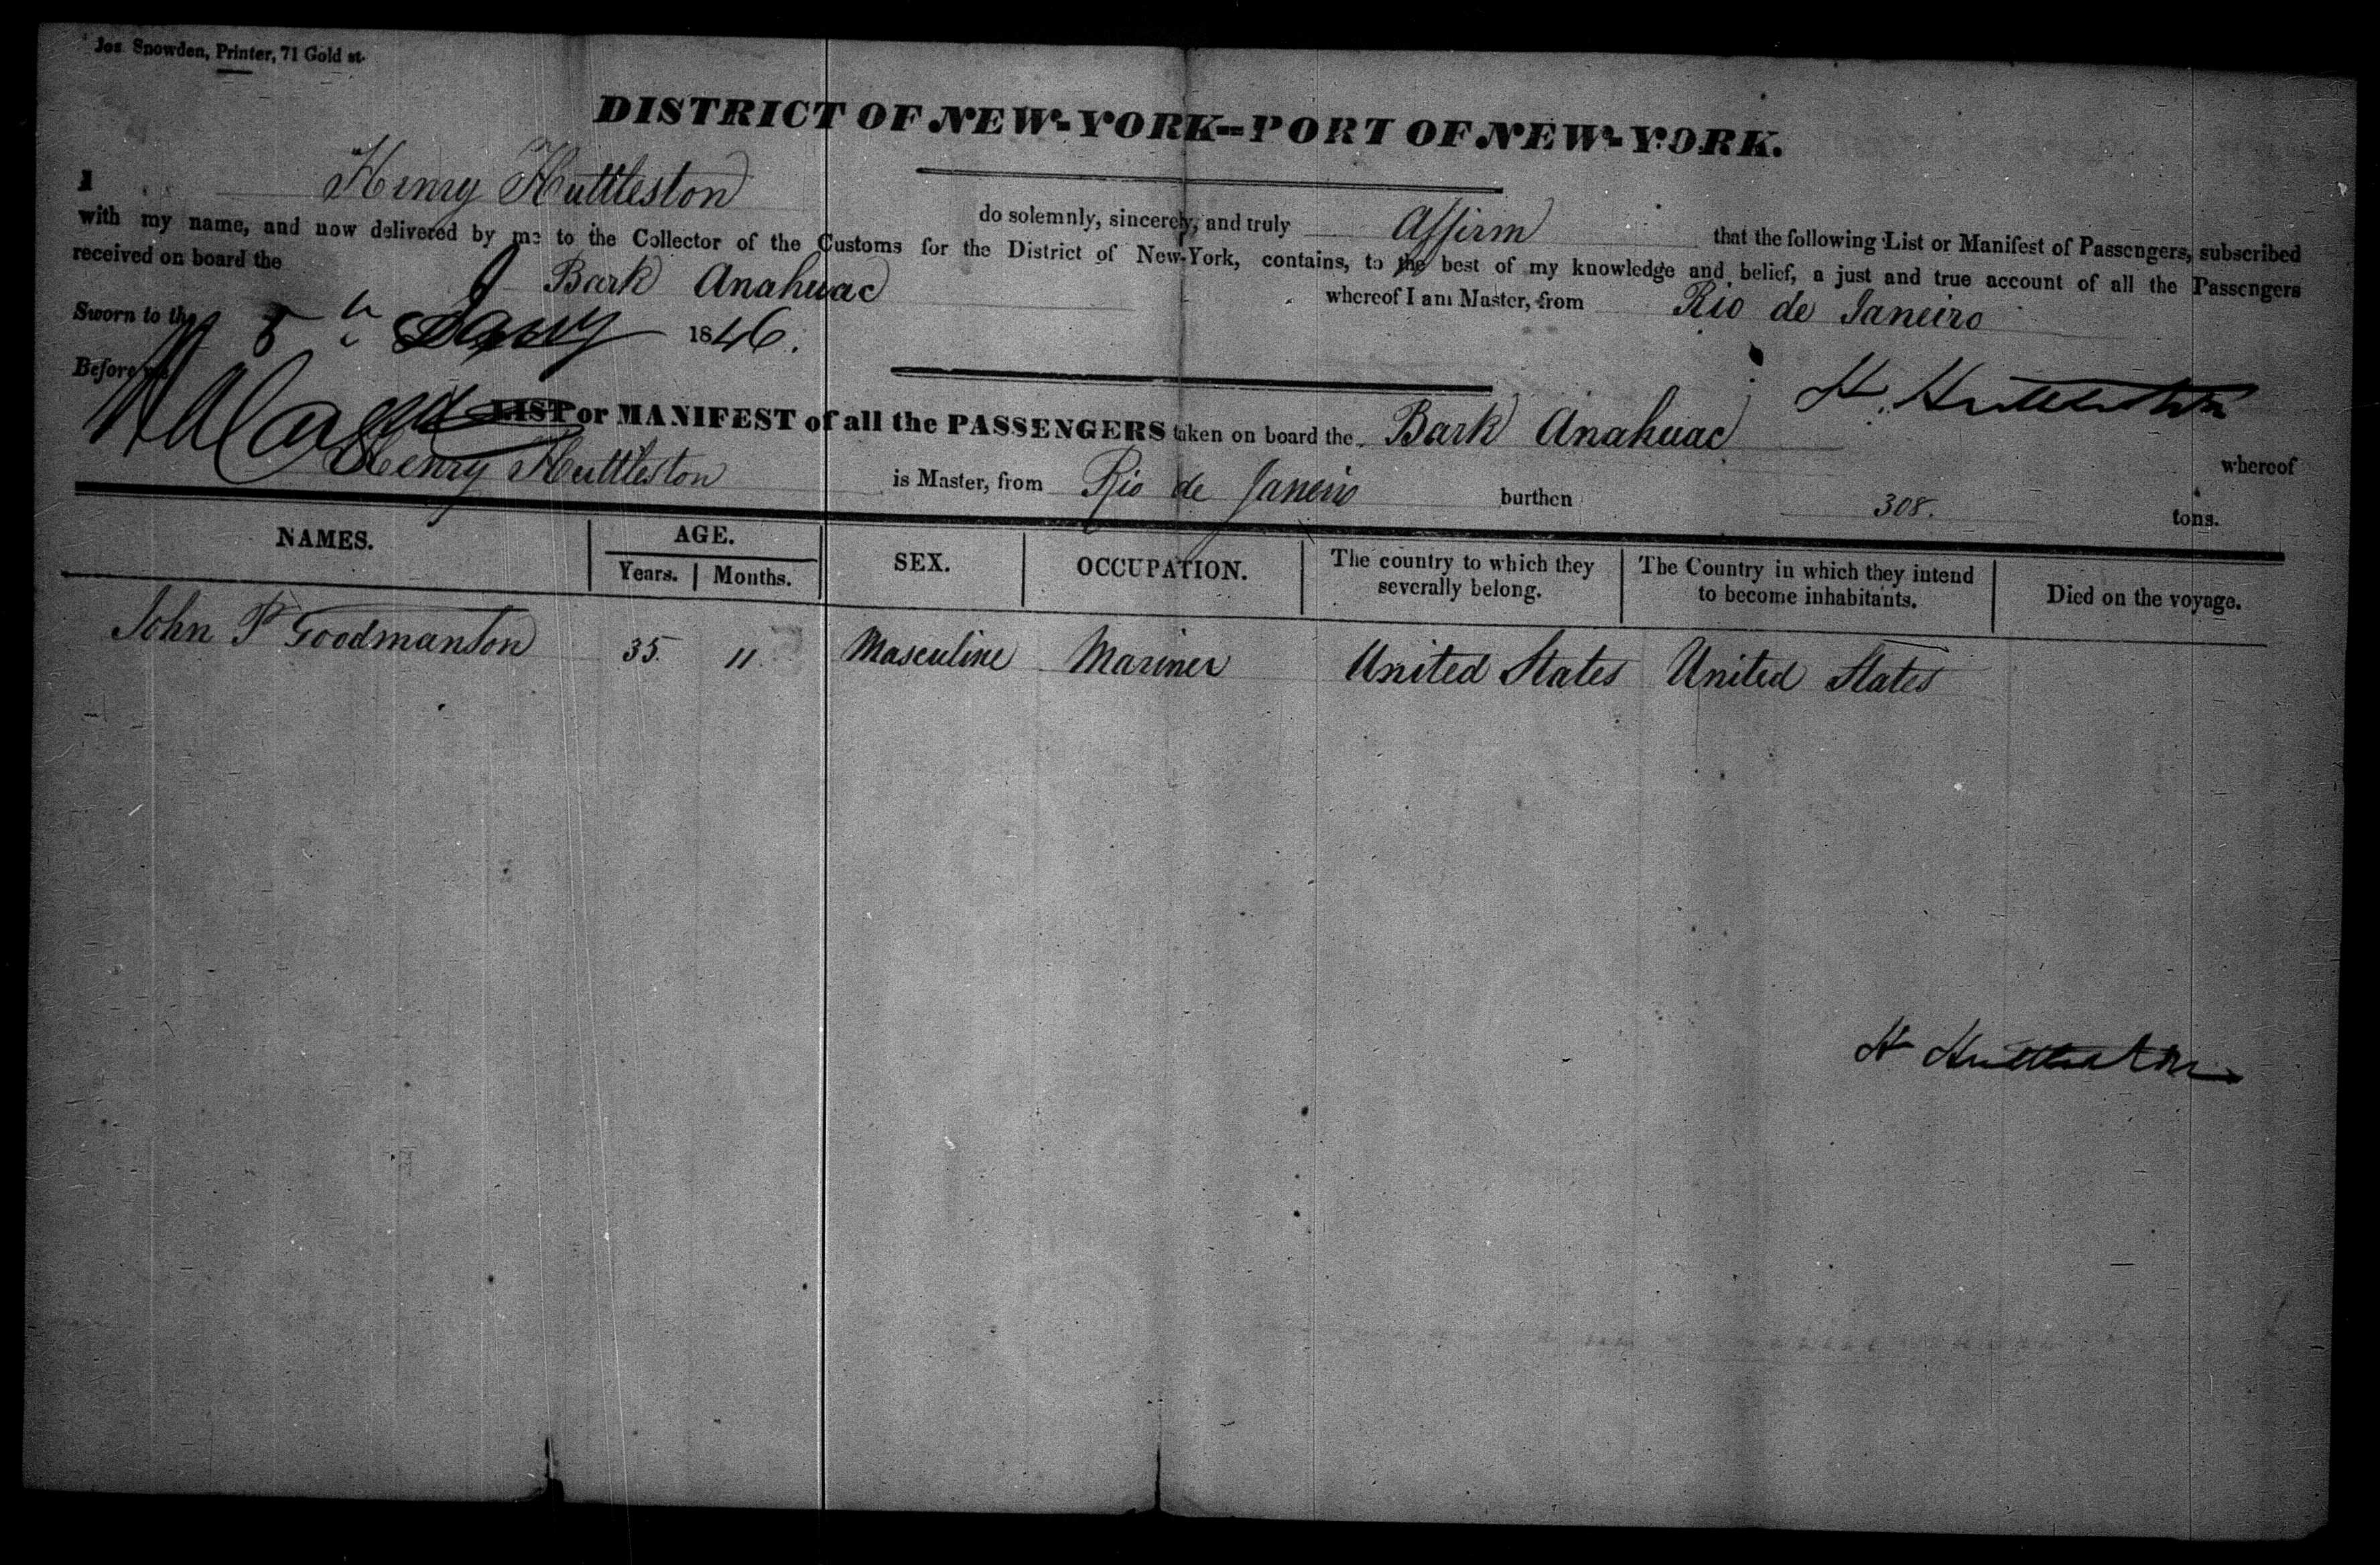 Jos. Snowden, Printer, 71 Gold st.
DISTRICT OF NEW-YORK--PORT OF NEW-YORK.
I Henry Huttleston do solemnly, sincerely, and truly Affirm that the following List or Manifest of Passengers, subscribed
with my name, and now delivered by me to the Collector of the Customs for the District of New-York, contains, to the best of my knowledge and belief, a just and true account of all the Passengers
received on board the Bark Anahuac whereof I am Master, from Rio de Janeiro
Sworn to the Jany 1846.
Before me H. Huttleston
LIST or MANIFEST of all the PASSENGERS taken on board the Bark Anahuac whereof
Henry Huttleston is Master, from Rio de Janeiro burthen 308. tons.
NAMES. AGE. SEX. OCCUPATION. The country to which they severally belong. The Country in which they intend to become inhabitants. Died on the voyage.
Years. Months.
John P Goodmanson 35. 11. Masculine Mariner United States United States
H Huttleston